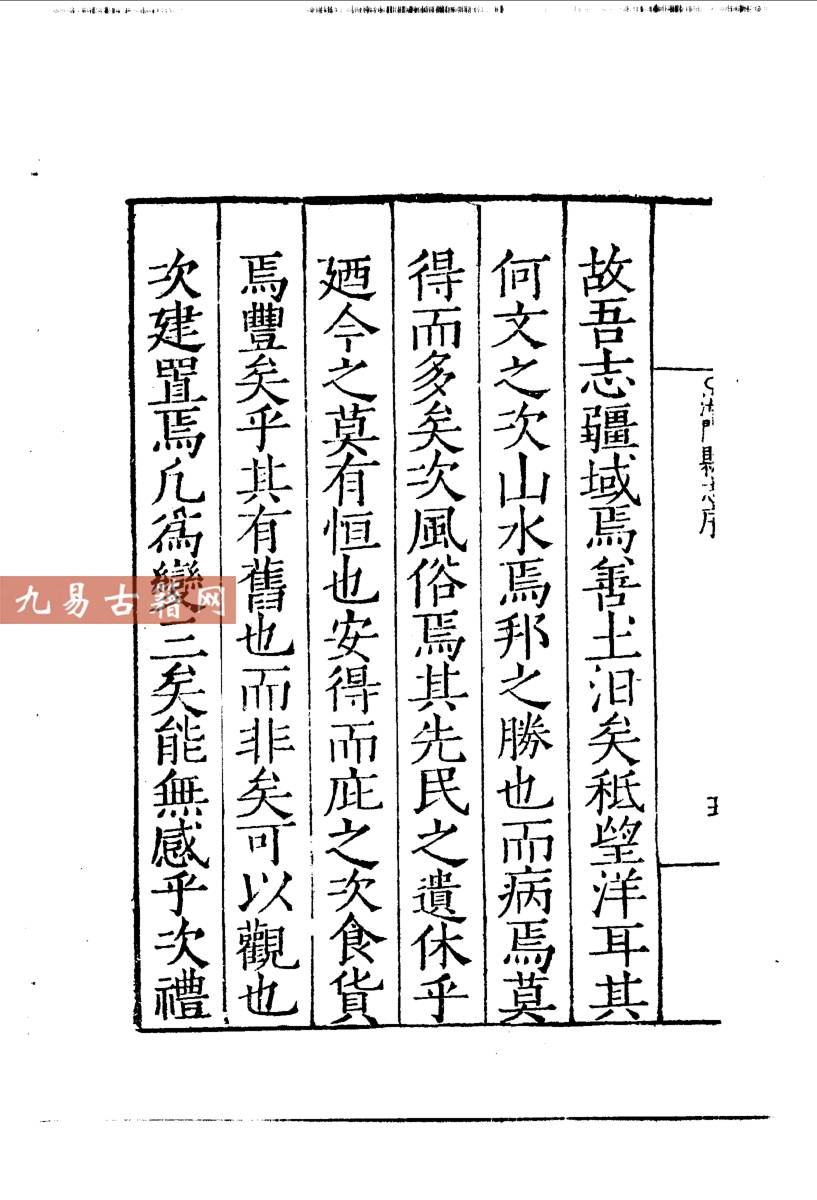 海門縣志序
故吾志疆域焉善土汨矣秪望洋耳其
何文之次山水焉邦之勝也而病焉莫
得而多矣次風俗焉其先民之遺休乎
廼今之莫有恒也安得而庇之次食貨
焉豐矣乎其有舊也而非矣可以觀也
次建置焉凡爲變三矣能無感乎次禮
九易古籍网